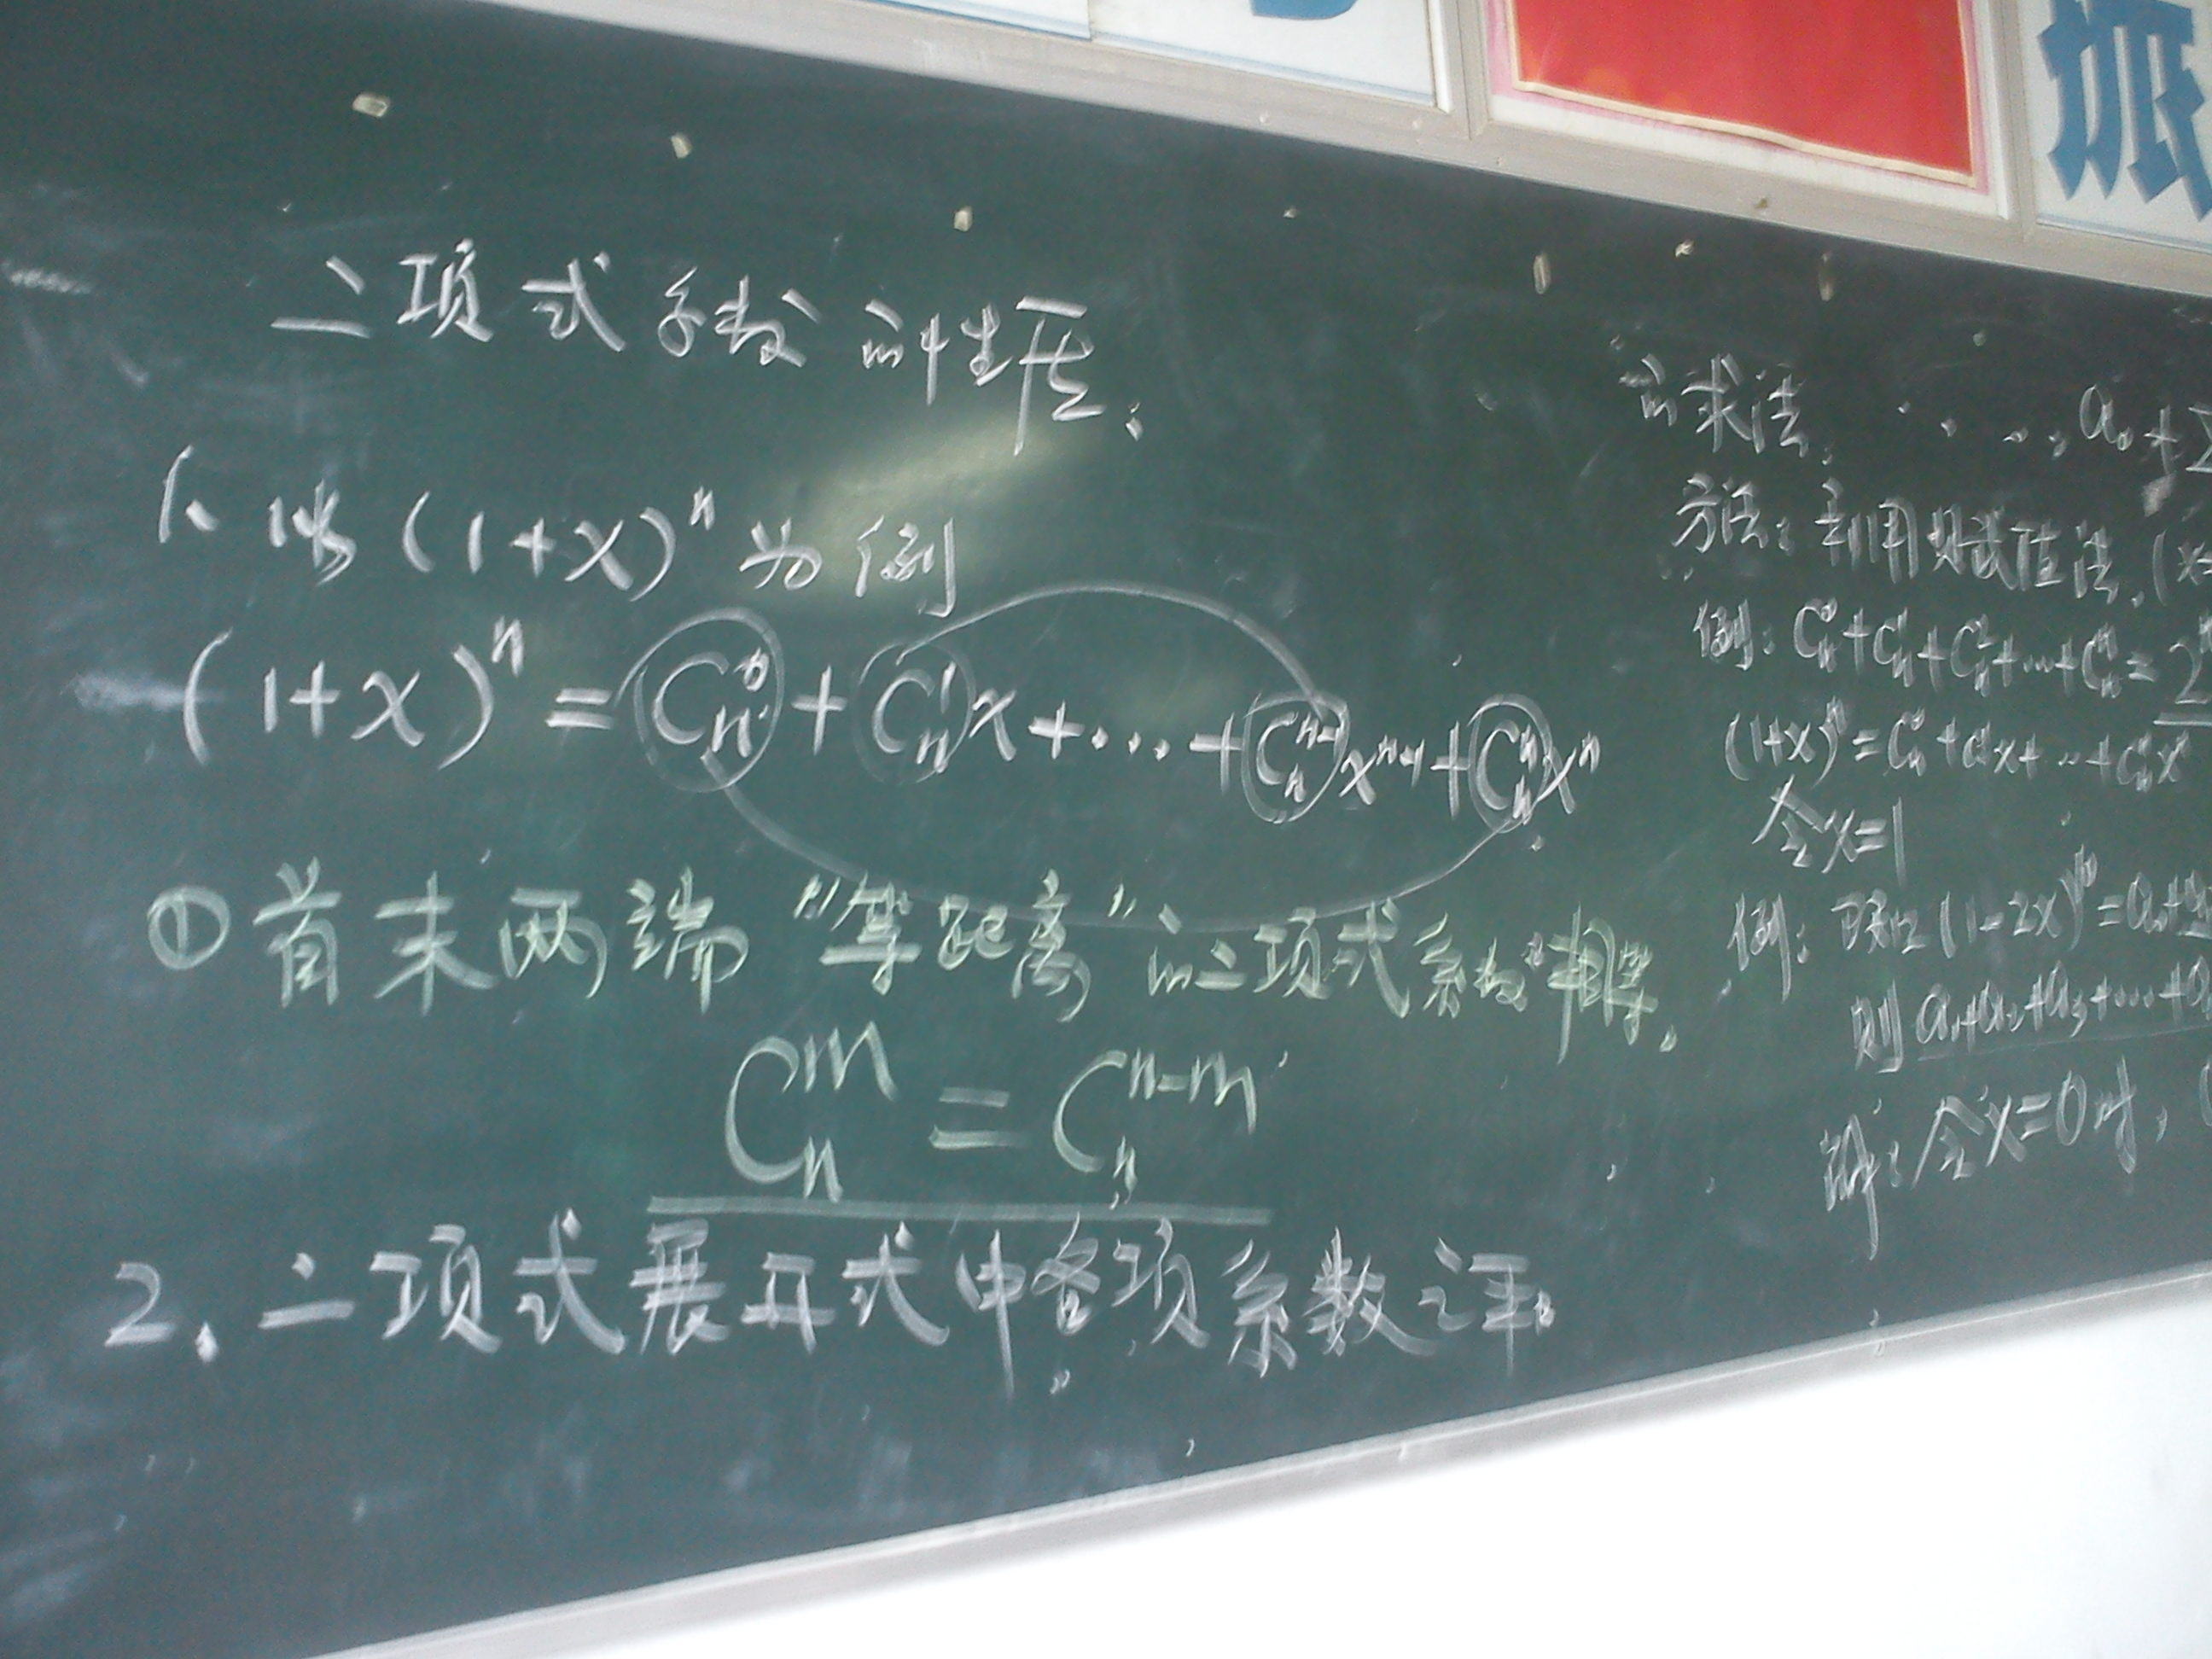 二项式系数的性质:
1. 以(1+x)ⁿ为例
(1+x)ⁿ = Cₙ⁰ + Cₙ¹x + ... + Cₙⁿ⁻¹xⁿ⁻¹ + Cₙⁿxⁿ
①首末两端“等距离”的二项式系数相等.
Cₙᵐ = Cₙⁿ⁻ᵐ
2. 二项式展开式中各项系数之和
的求法.
方法: 利用赋值法. (x=
例: Cₙ⁰+Cₙ¹+Cₙ²+...+Cₙⁿ=2ⁿ
(1+x)ⁿ=Cₙ⁰+Cₙ¹x+...+Cₙⁿxⁿ
令x=1
例: 已知(1-2x)
则 a₁+a₂+a₃+...+a
解: 令x=0时, (